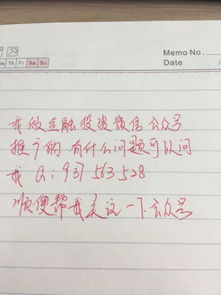 Memo No.
Date
Th Fr Sa Su
我做金融投资微信公众号
推广的 有什么问题可以问
我 Q:937563528
顺便帮我关注一下公众号